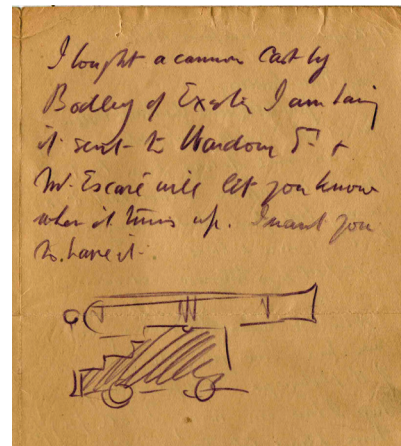 I bought a cannon cast by
Bodley of Exeter I am having
it sent to Wardour St. &
Mr. Escaré will let you know
when it turns up. I want you
to have it.